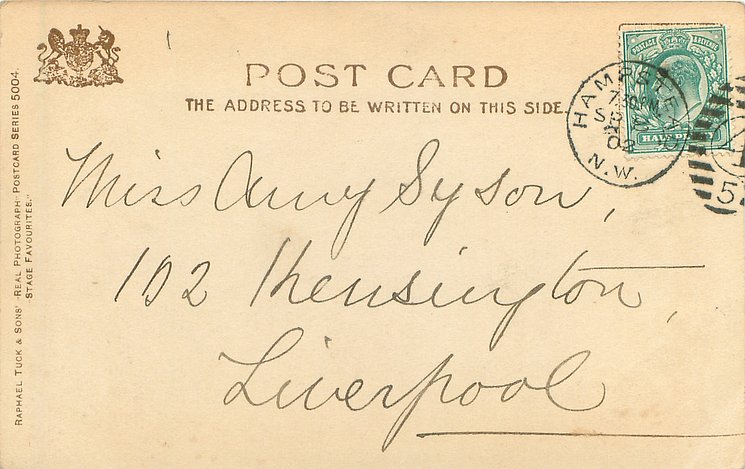 POST CARD
THE ADDRESS TO BE WRITTEN ON THIS SIDE.
POSTAGE & REVENUE
HALF PENNY
HAMPSTEAD
7.30PM
SP
02
N.W.
5
Miss Amy Syson,
102 Kensington,
Liverpool
RAPHAEL TUCK & SONS' "REAL PHOTOGRAPH" POSTCARD SERIES 5004.
"STAGE FAVOURITES."